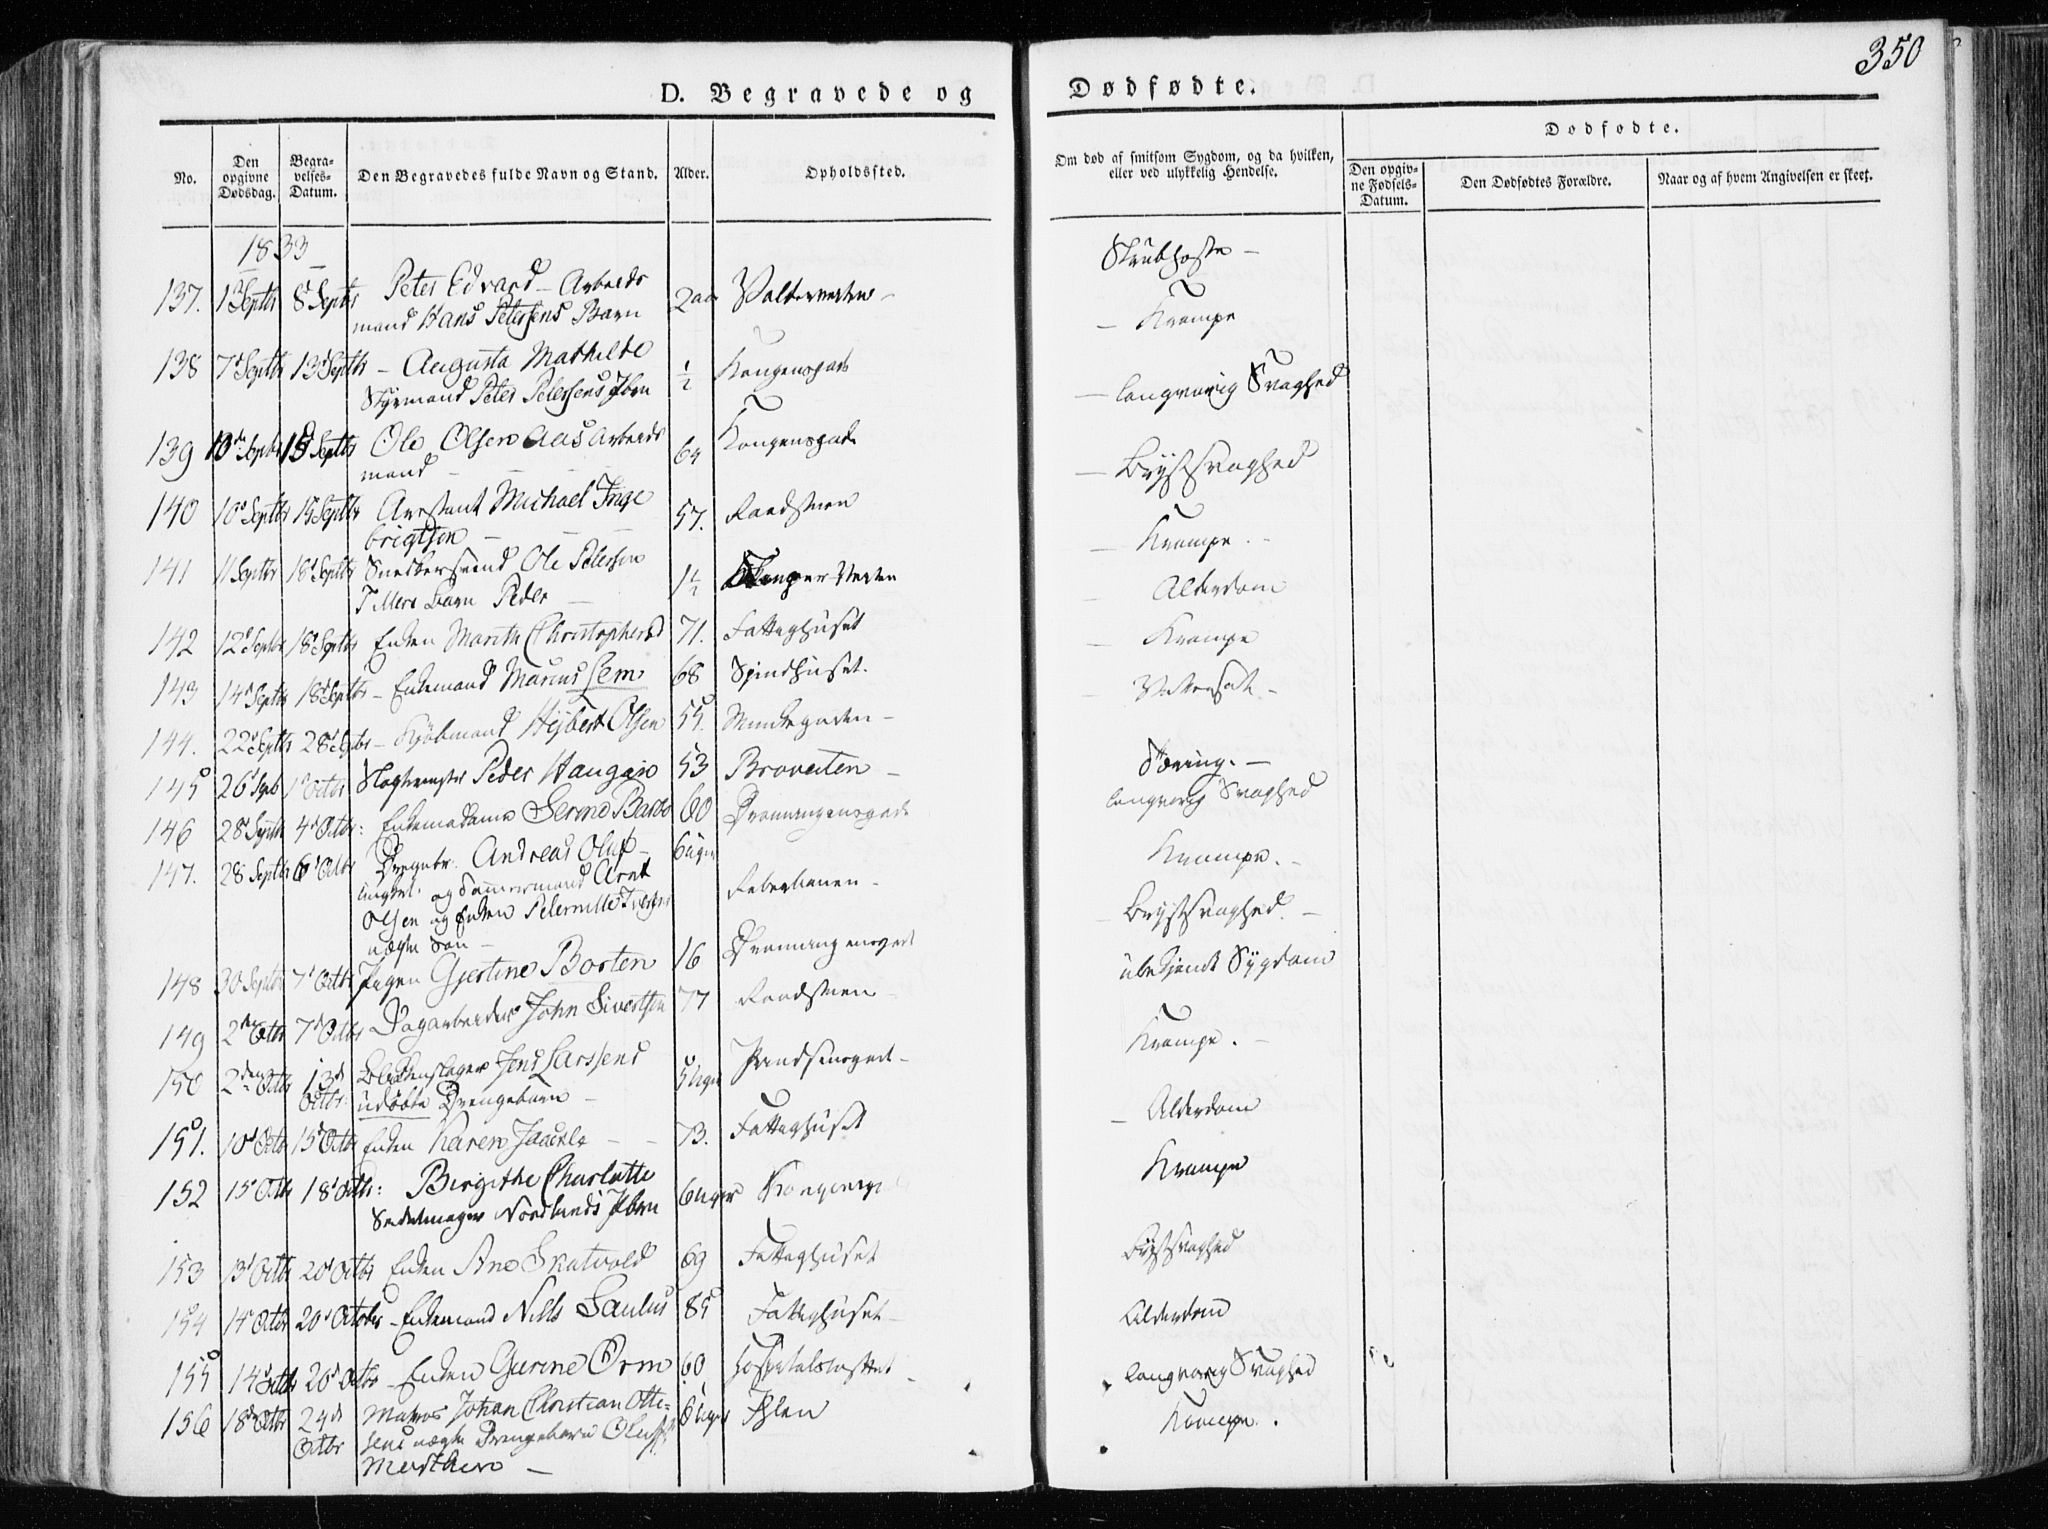 350
D. Begravede og Dødfødte.
No.
Den opgivne Dødsdag.
Begravelses-Datum.
Den Begravedes fulde Navn og Stand.
Alder.
Opholdssted.
Om død af smitsom Sygdom, og da hvilken, eller ved ulykkelig Hendelse.
Dødfødte.
Den opgivne Fødsels-Datum.
Den Dødfødtes Forældre.
Naar og af hvem Angivelsen er skeet.
1833
137. 1 Septbr 8 Septbr Peter Edvard – Arbeids
mand Hans Petersens Barn 2 aar
Skrubhoste –
138 7 Septbr 13 Septbr – Augusta Mathilde
Styrmand Peter Petersens 1/2 Kongensgade
– Krampe
139 Septbr Septbr Ole Olsen Aas Arbeids
mand – 64 Kongensgade
– langvarig Svaghed
140 10 Septbr 15 Septbr Arrestant Michael Inge
brigtsen – 57. Raadstuen
– Brystsvaghed
141 11 Septbr 18 Septbr Snedkersvend Ole Petersen
Tillers Barn Peder – 1 1/2
– Krampe. –
142 12 Septbr 18 Septbr Enken Marith Christophersd 71. Fattighuset
– Alderdom
143 14 Septbr 18 Septbr – Enkemand Marcus Sem 68 Spindhuset.
– Krampe
144. 22 Septbr 28 Septbr – Kjøbmand Hijbert Olsen 55. Munkegaden –
– Vattersot –
145 26 Septb 1 Octbr Peder Haugan 53 Broveiten –
Tæring. –
146 28 Septbr 4 Octbr: Enkemadame 60 Dronningensgade
langvarig Svaghed
147. 28 Septbr 6 Octbr Drengebr. Andreas Oluf – 6 Uger
ungkrl. og Tømmermand Arnt
Olsen og Enken Peternille
uægte Søn – Reberbanen –
Krampe. –
148 30 Septbr 7 Octbr Pigen Gjertine Borten 16 Dronningensgade
– Brystsvaghed. –
149 2 Octbr 7 Octbr Dagarbeider John Sivertsen 77 Raadstuen
ubekjendt Sygdom
150 2 Octbr 13 Octbr: Blikkenslager Jens Larssens
udøbte Drengebarn – 5 Uger
Krampe. –
151. 10 Octbr 15 Octbr Enken Karen – – 73. Fattighuset
– Alderdom
152 15 Octbr 18 Octbr: Birgithe Charlotte
Sadelmager Nordlunds 6 Uger
Krampe
153 13 Octbr 20 Octbr Enken Ane Skatvold 69 Fattighuset
Brystsvaghed
154 14 Octbr 20 October – Enkemand Nills Saulus 85 Fattighuset –
Alderdom
155 14 Octbr 20 Octbr – Enken Gurine Orm 60
langvarig Svaghed
156 18 Octbr 24 Octbr Matros Johan Christian Otte-
sens uægte Drengebarn Oluf
– 6 Uger Ihlen
Krampe.